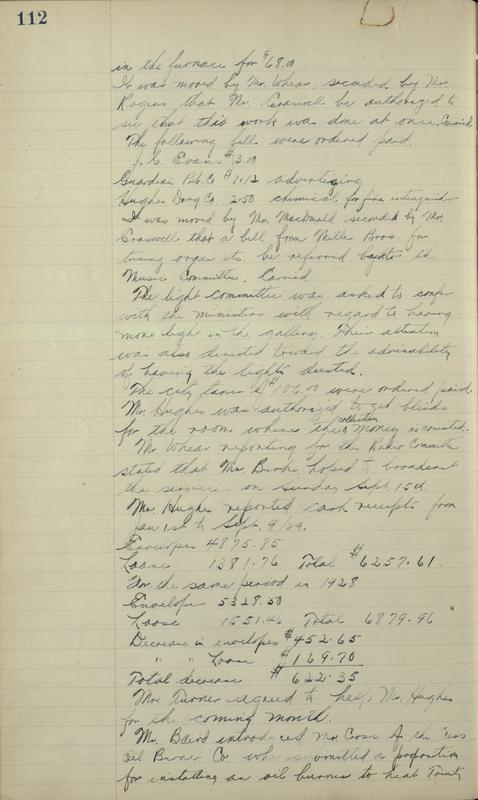 112
in the furnace for $68.00
It was moved by Mr. Whear, seconded by Mr.
Rogers that Mr. Creswell be authorized to
see that this work was done at once. Carried.
The following bills were ordered paid.
J. G. Evans $3.00
Guardian Pub. Co $1.12 advertizing
Hughes Drug Co. 2.50 chemical for fire extinguisher
It was moved by Mr. MacDonald seconded by Mr.
Creswell that a bill from Miller Bros. for
tuning organ etc. be referred back to the
Music Committee. Carried
The light committee was asked to confer
with the ministers with regard to having
more light in the gallery. Their attention
was also directed toward the advisability
of having the lights dusted.
The city taxes of $106.00 were ordered paid.
Mr. Hughes was authorized to get blinds
for the room where the collection money is counted.
Mr. Whear reporting for the Radio Committee
stated that Mr. Burke hoped to broadcast
the services on Sunday Sept. 15th.
Mr. Hughes reported cash receipts from
Jan 1st to Sept. 9/29.
Envelopes 4875.85
Loose 1381.76 Total $6257.61.
For the same period in 1928
Envelopes 5328.50
Loose 1551.46 Total 6879.96
Decrease in envelopes $452.65
" " Loose $169.70
Total decrease $622.35
Mr. Turner agreed to help Mr. Hughes
for the coming month.
Mr. Baird introduced Mr. Cross of the
Oil Burner Co. who submitted a proposition
for installing an oil burner to heat Trinity